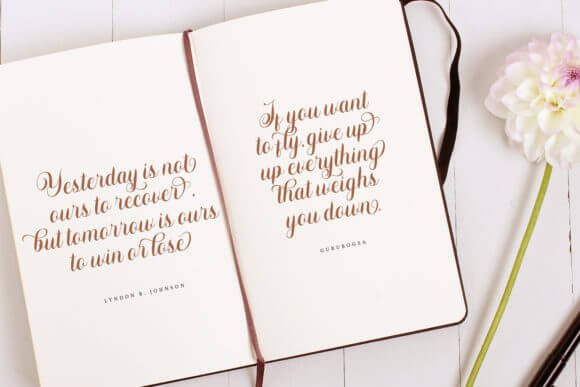 Yesterday is not
ours to recover,
but tomorrow is ours
to win or lose
LYNDON B. JOHNSON
If you want
to fly, give up
up everything
that weighs
you down.
GURUBOGSA